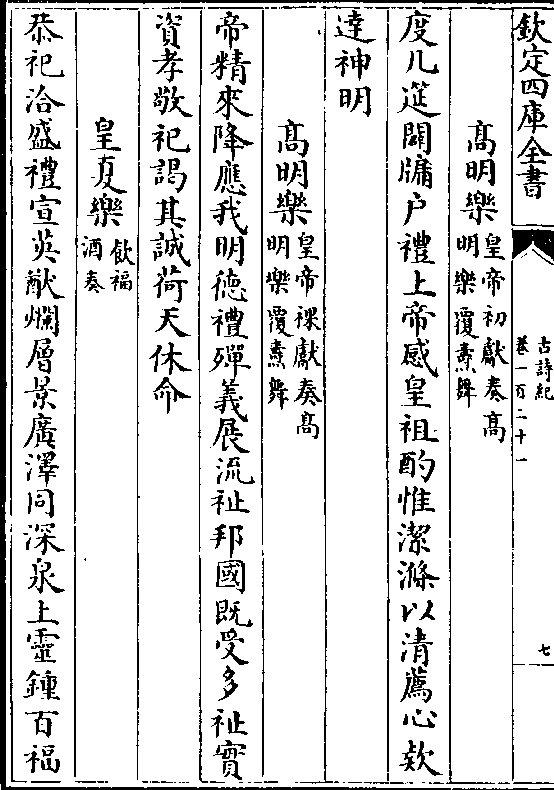 欽定四庫全書
古詩紀
卷一百二十一
七
高明樂皇帝初獻奏高
明樂覆燾舞
度几筵闢牖户禮上帝感皇祖酌惟潔滌以清薦心欵
達神明
高明樂皇帝祼獻奏高
明樂覆燾舞
帝精來降應我明德禮殫義展流祉邦國既受多祉實
資孝敬祀謁其誠荷天休命
皇夏樂飲福
酒奏
恭祀洽盛禮宣英猷爛層景廣澤同深泉上靈鍾百福